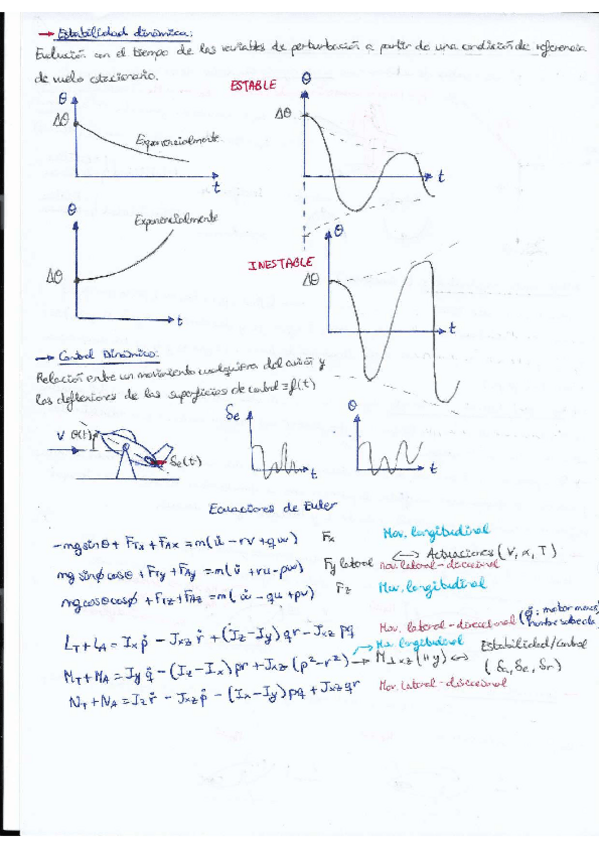 → Estabilidad dinámica:
Evolución con el tiempo de las variables de perturbación a partir de una condición de referencia
de vuelo estacionario.
θ
Δθ
Exponencialmente
t
ESTABLE
θ
Δθ
t
θ
Exponencialmente
Δθ
t
INESTABLE
θ
Δθ
t
→ Control Dinámico:
Relación entre un movimiento cualquiera del avión y
las deflexiones de las superficies de control = f(t)
V θ(t) δe(t)
δe
t
θ
t
Ecuaciones de Euler
-mg sinθ + F_Tx + F_Ax = m(u̇ - rv + qw) Fx Mov. longitudinal
mg sinϕ cosθ + F_Ty + F_Ay = m(v̇ + ru - pw) Fy lateral Mov. lateral-direccional
⟷ Actuaciones (V, α, T)
mg cosθ cosϕ + F_Tz + F_Az = m(ẇ - qu + pv) Fz Mov. longitudinal
L_T + L_A = I_x ṗ - J_xz ṙ + (I_z - I_y) qr - J_xz pq Mov. lateral-direccional
M_T + M_A = I_y q̇ - (I_z - I_x) pr + J_xz (p² - r²) → M⊥xz (∥y) ⟷ Estabilidad/Control
Mov. longitudinal
(δa, δe, δr)
N_T + N_A = I_z ṙ - J_xz ṗ - (I_x - I_y) pq + J_xz qr Mov. lateral-direccional